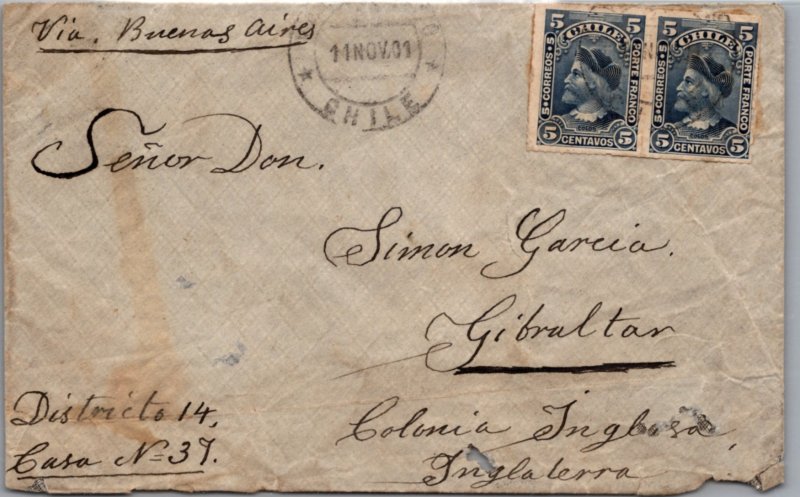 Via. Buenas Aires
11 NOV. 01
CHILE
5 CHILE 5
CORREOS
PORTE FRANCO
COLON
5 CENTAVOS 5
5 CHILE 5
CORREOS
PORTE FRANCO
COLON
5 CENTAVOS 5
Señor Don.
Simon Garcia.
Gibraltar
Colonia Inglesa,
Inglaterra
Districto 14,
Casa Nº 37.